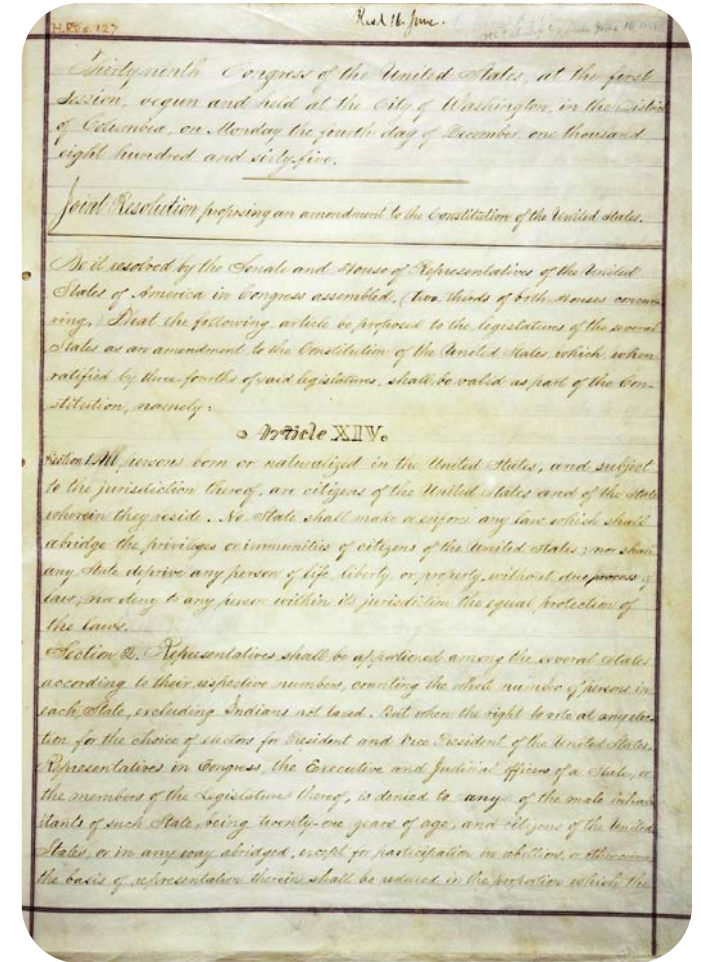 H. Res. 127
Recd 16. June.
Thirty-ninth Congress of the United States, at the first
Session, begun and held at the City of Washington, in the District
of Columbia, on Monday the fourth day of December, one thousand
eight hundred and sixty-five.
Joint Resolution proposing an amendment to the Constitution of the United States.
Be it resolved by the Senate and House of Representatives of the United
States of America in Congress assembled, (two thirds of both Houses concur-
ring,) That the following article be proposed to the legislatures of the several
States as an amendment to the Constitution of the United States, which, when
ratified by three-fourths of said legislatures, shall be valid as part of the Con-
stitution, namely:
Article XIV.
Section 1. All persons born or naturalized in the United States, and subject
to the jurisdiction thereof, are citizens of the United States and of the State
wherein they reside. No State shall make or enforce any law which shall
abridge the privileges or immunities of citizens of the United States; nor shall
any State deprive any person of life, liberty, or property, without due process of
law; nor deny to any person within its jurisdiction the equal protection of
the laws.
Section 2. Representatives shall be apportioned among the several States
according to their respective numbers, counting the whole number of persons in
each State, excluding Indians not taxed. But when the right to vote at any elec-
tion for the choice of electors for President and Vice President of the United States,
Representatives in Congress, the Executive and Judicial officers of a State, or
the members of the Legislature thereof, is denied to any of the male inhab-
itants of such State, being twenty-one years of age, and citizens of the United
States, or in any way abridged, except for participation in rebellion, or other crime,
the basis of representation therein shall be reduced in the proportion which the